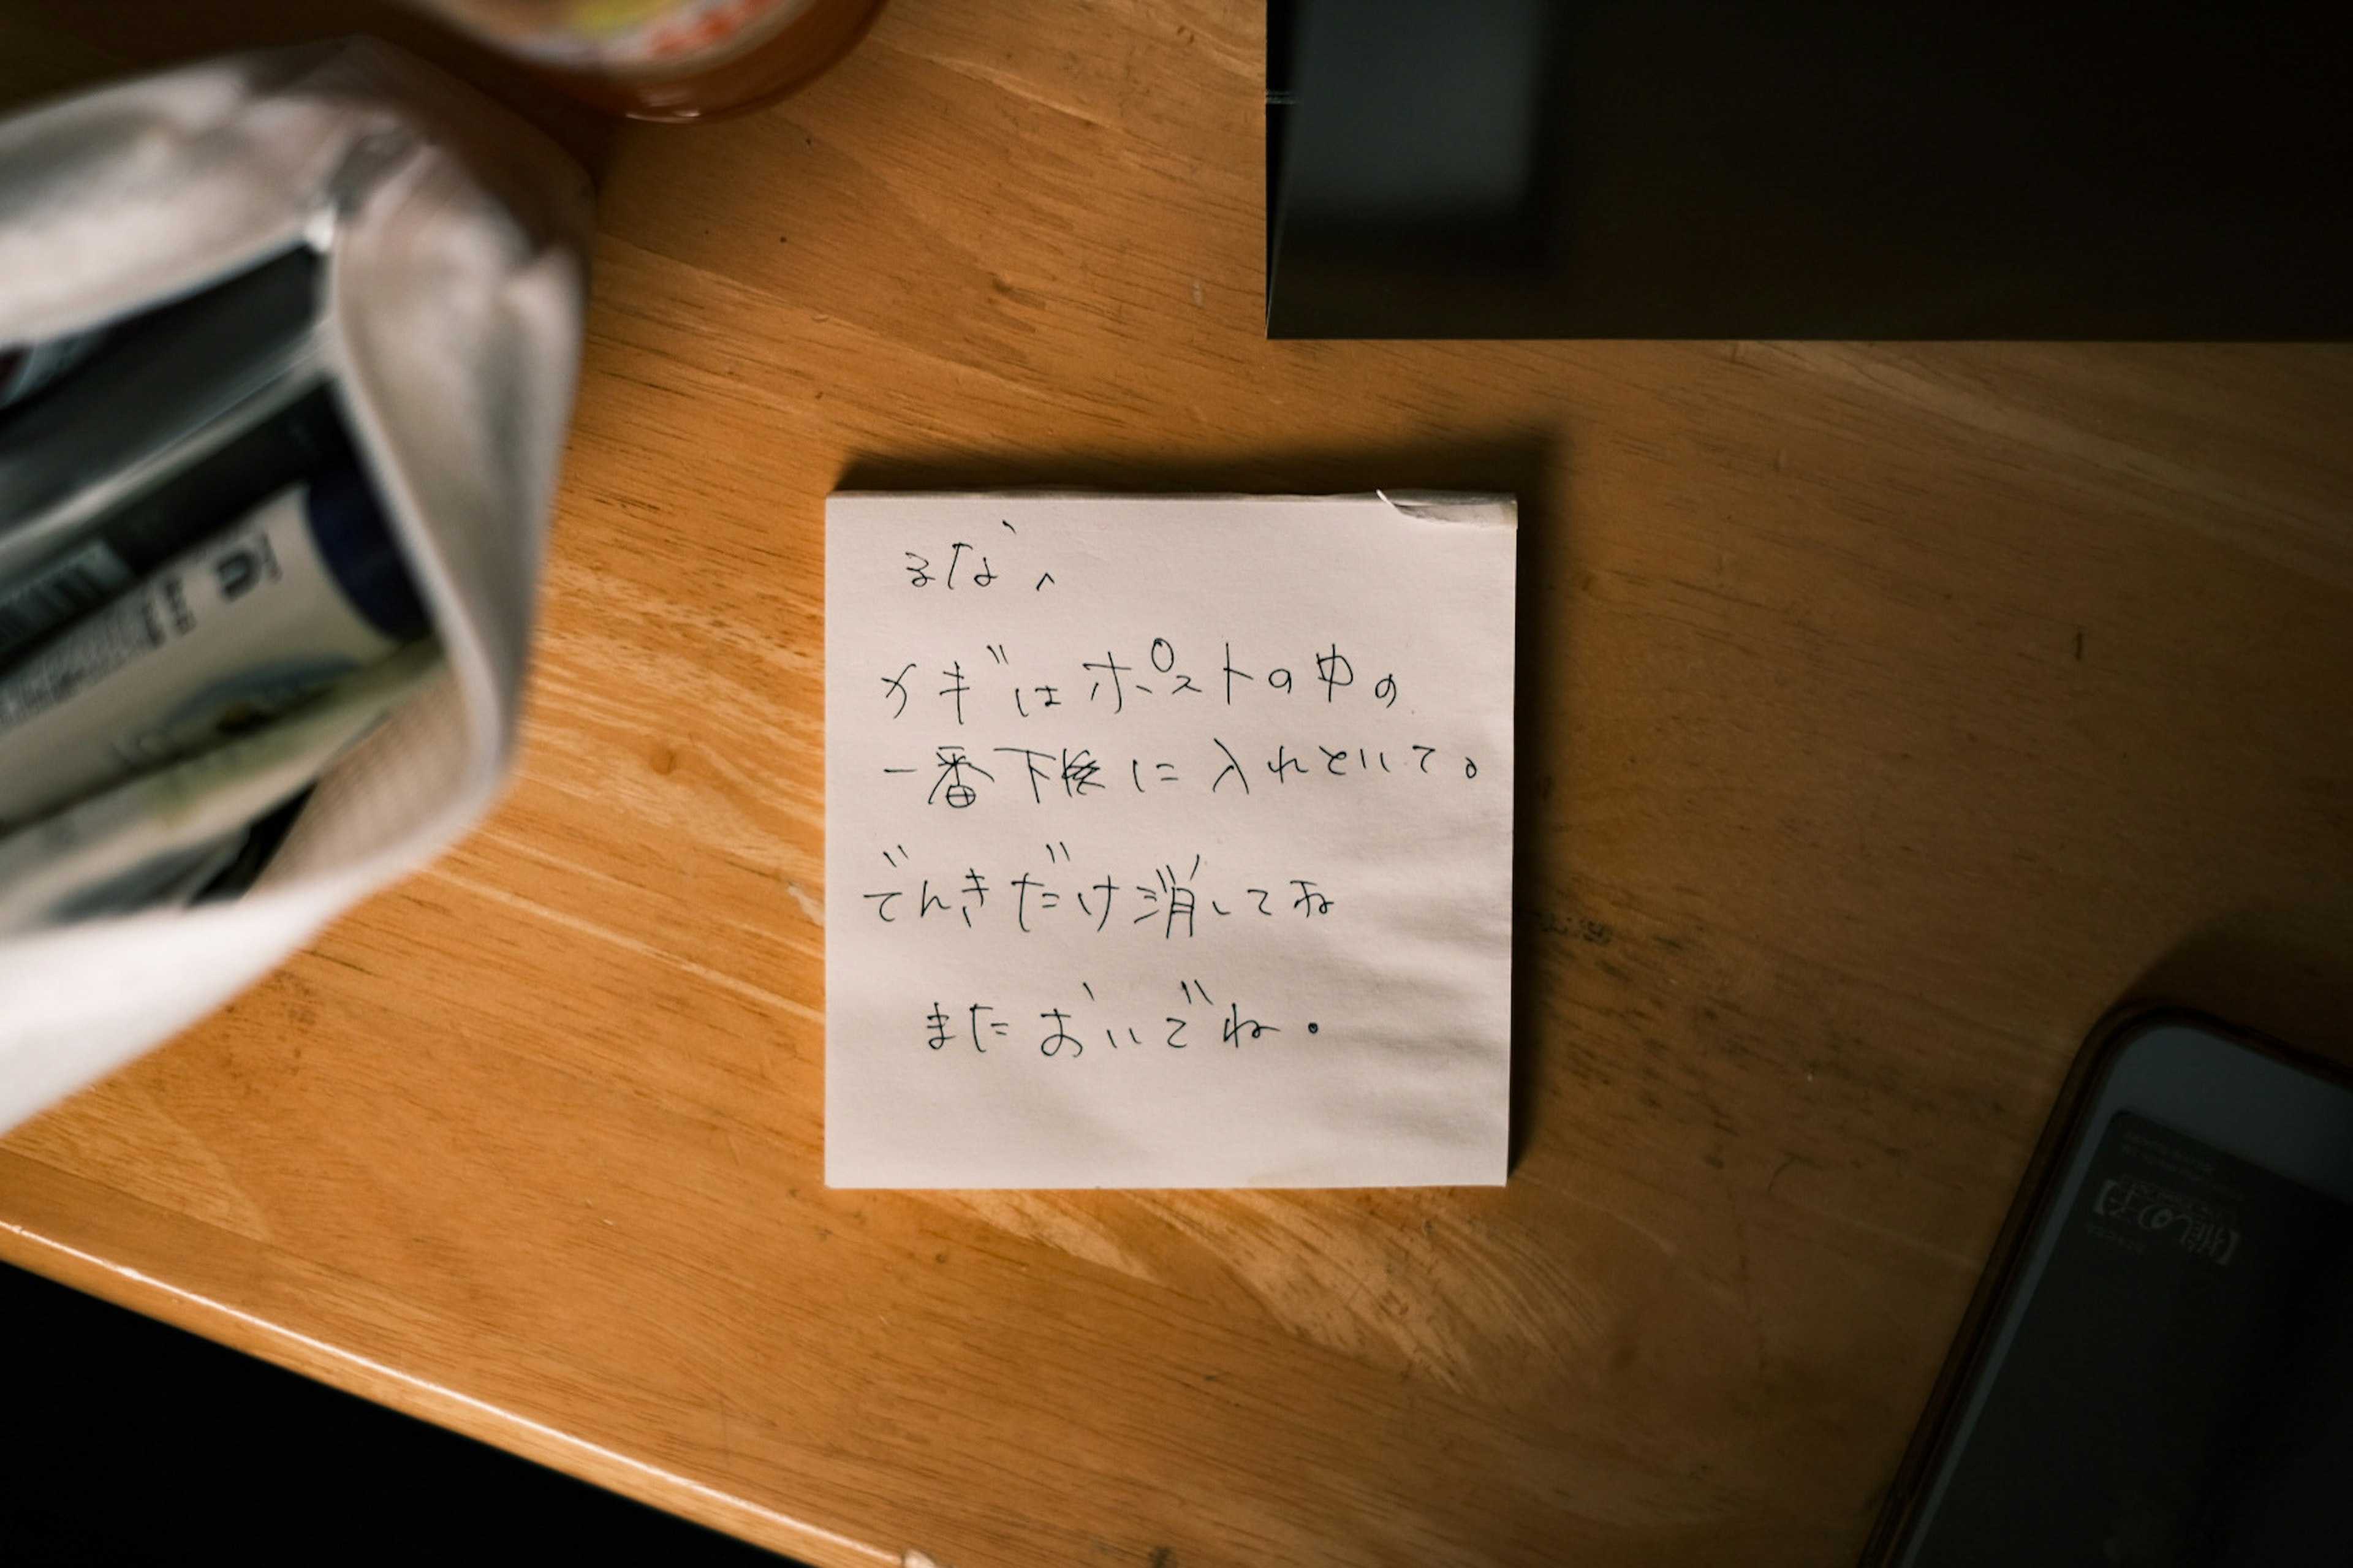 るな、
カギはポストの中の
一番下に入れといて。
でんきだけ消してね
またおいでね.
【推しの子】